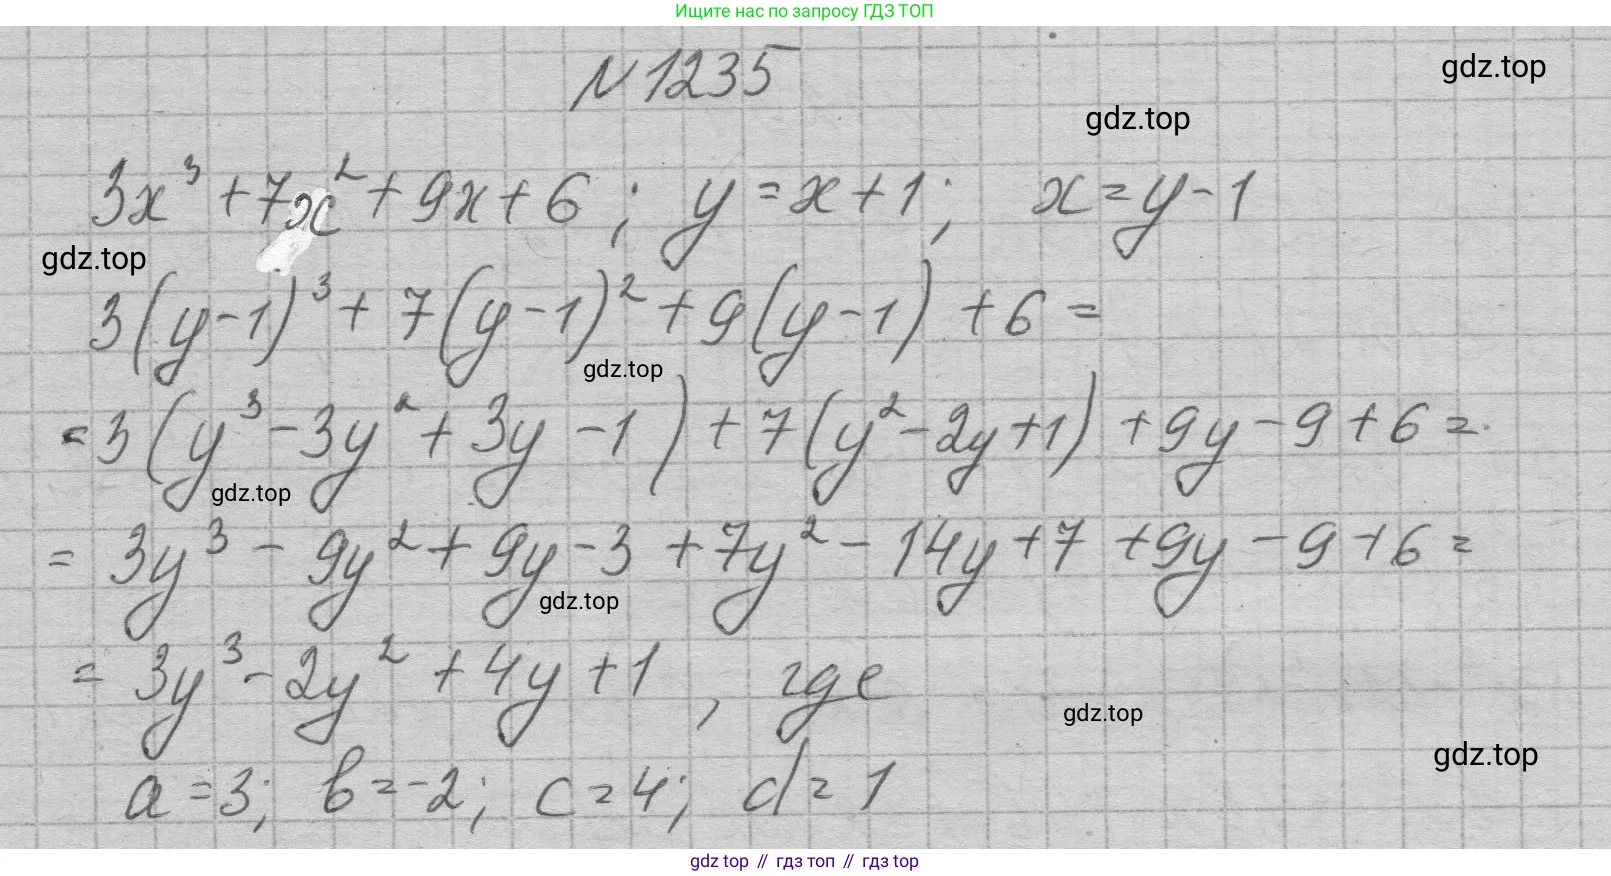 Ищите нас по запросу ГДЗ ТОП
N 1235
gdz.top
gdz.top
3x³ + 7x² + 9x + 6 ; y = x + 1 ; x = y - 1
gdz.top
3(y-1)³ + 7(y-1)² + 9(y-1) + 6 =
gdz.top
= 3(y³ - 3y² + 3y - 1) + 7(y² - 2y + 1) + 9y - 9 + 6 =
gdz.top
= 3y³ - 9y² + 9y - 3 + 7y² - 14y + 7 + 9y - 9 + 6 =
gdz.top
= 3y³ - 2y² + 4y + 1 , где
gdz.top
gdz.top
a = 3; b = -2; c = 4; d = 1
gdz top // гдз топ // гдз top